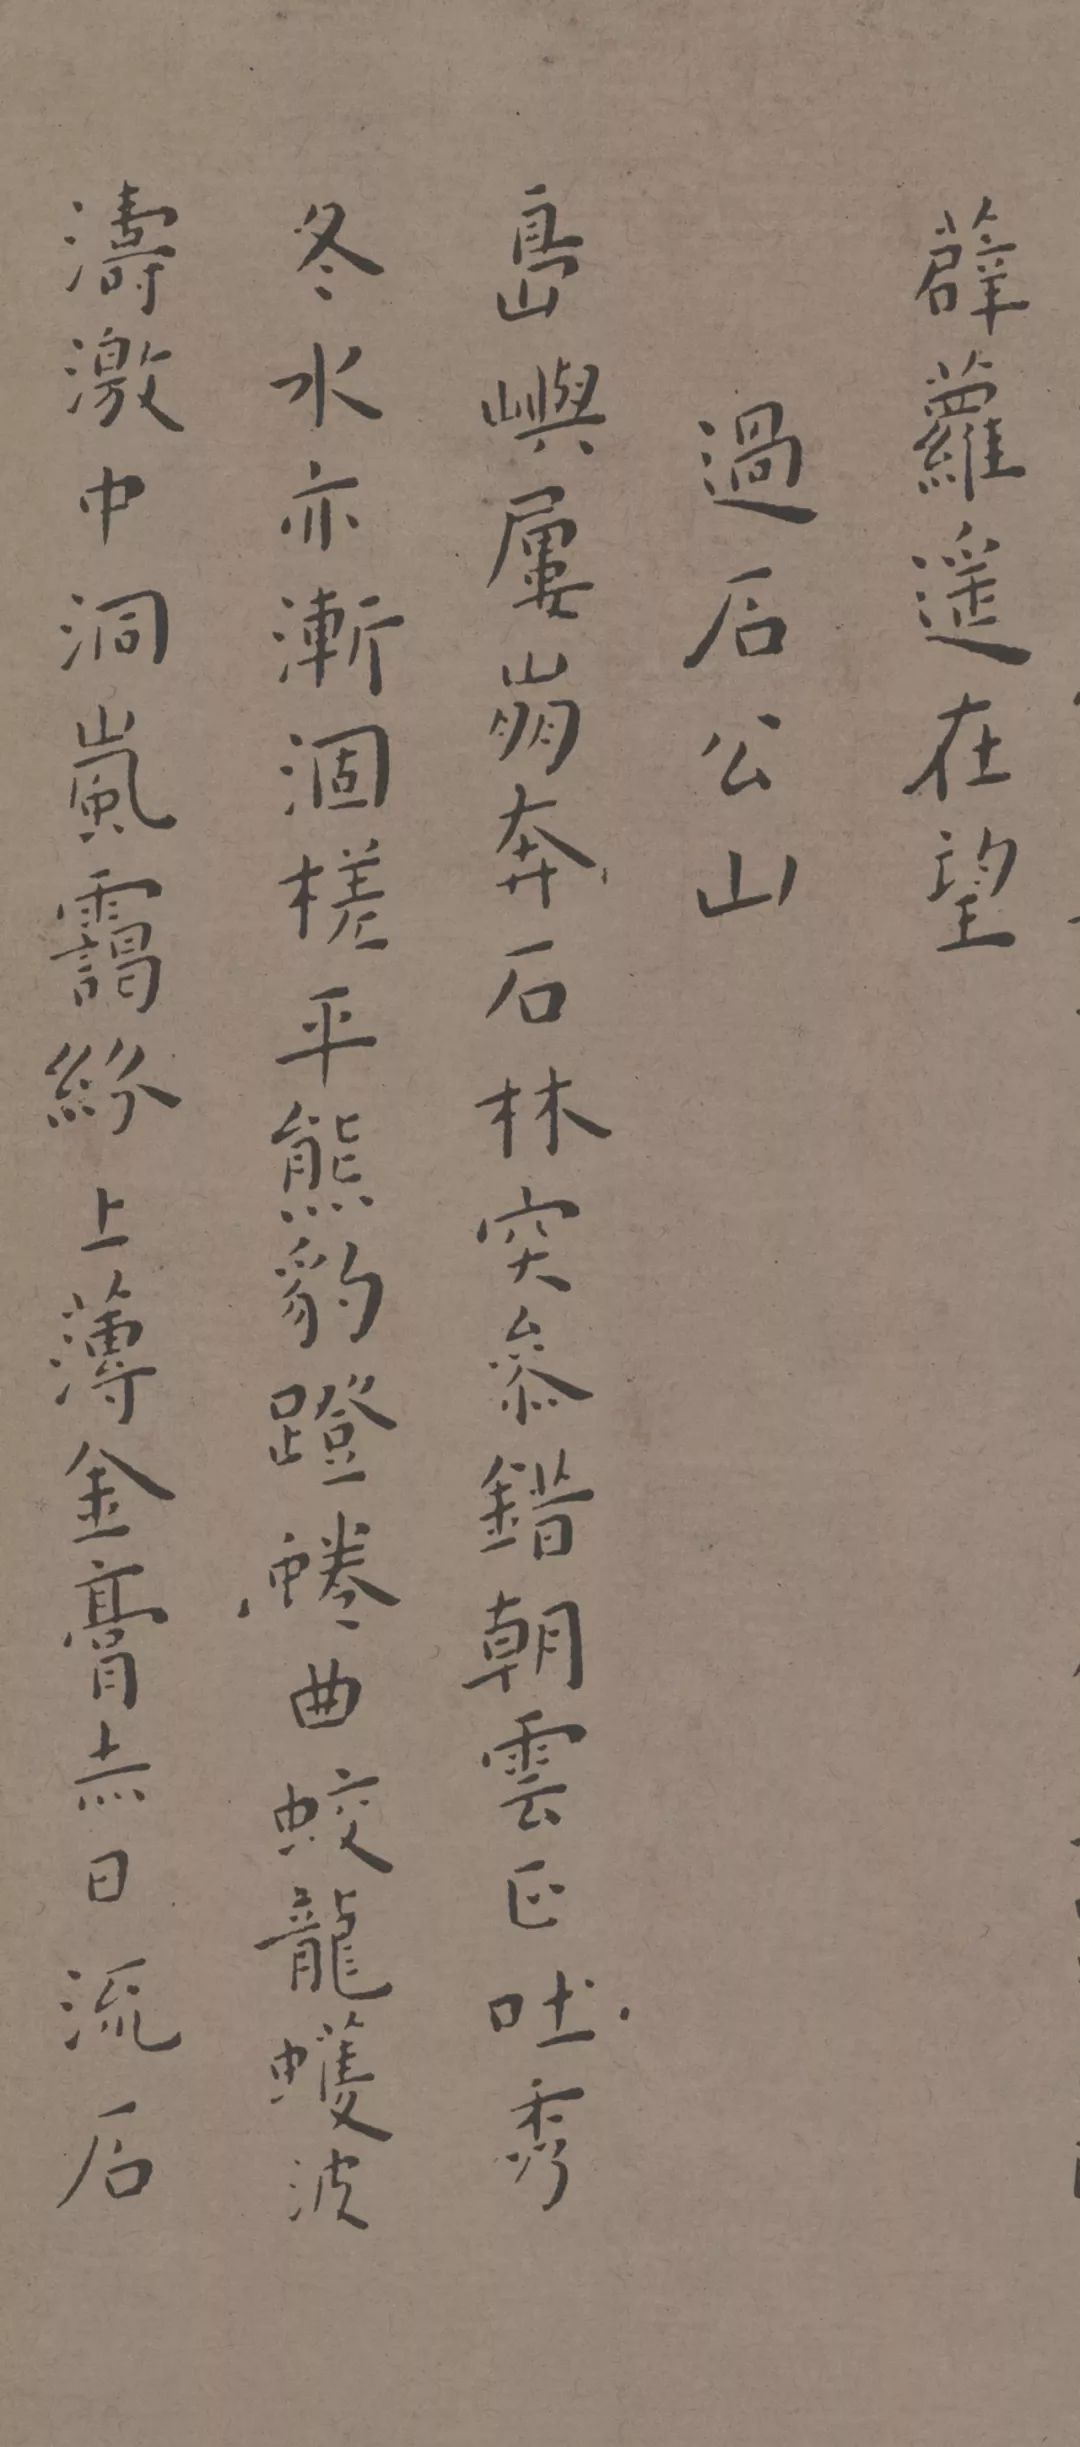 薜蘿遥在望
過石公山
島嶼屢崩奔石林突參錯朝雲正吐秀
冬水亦漸涸槎平熊豹蹬蜷曲蛟龍蠖波
濤激中洞嵐靄紛上薄金膏赤日流石